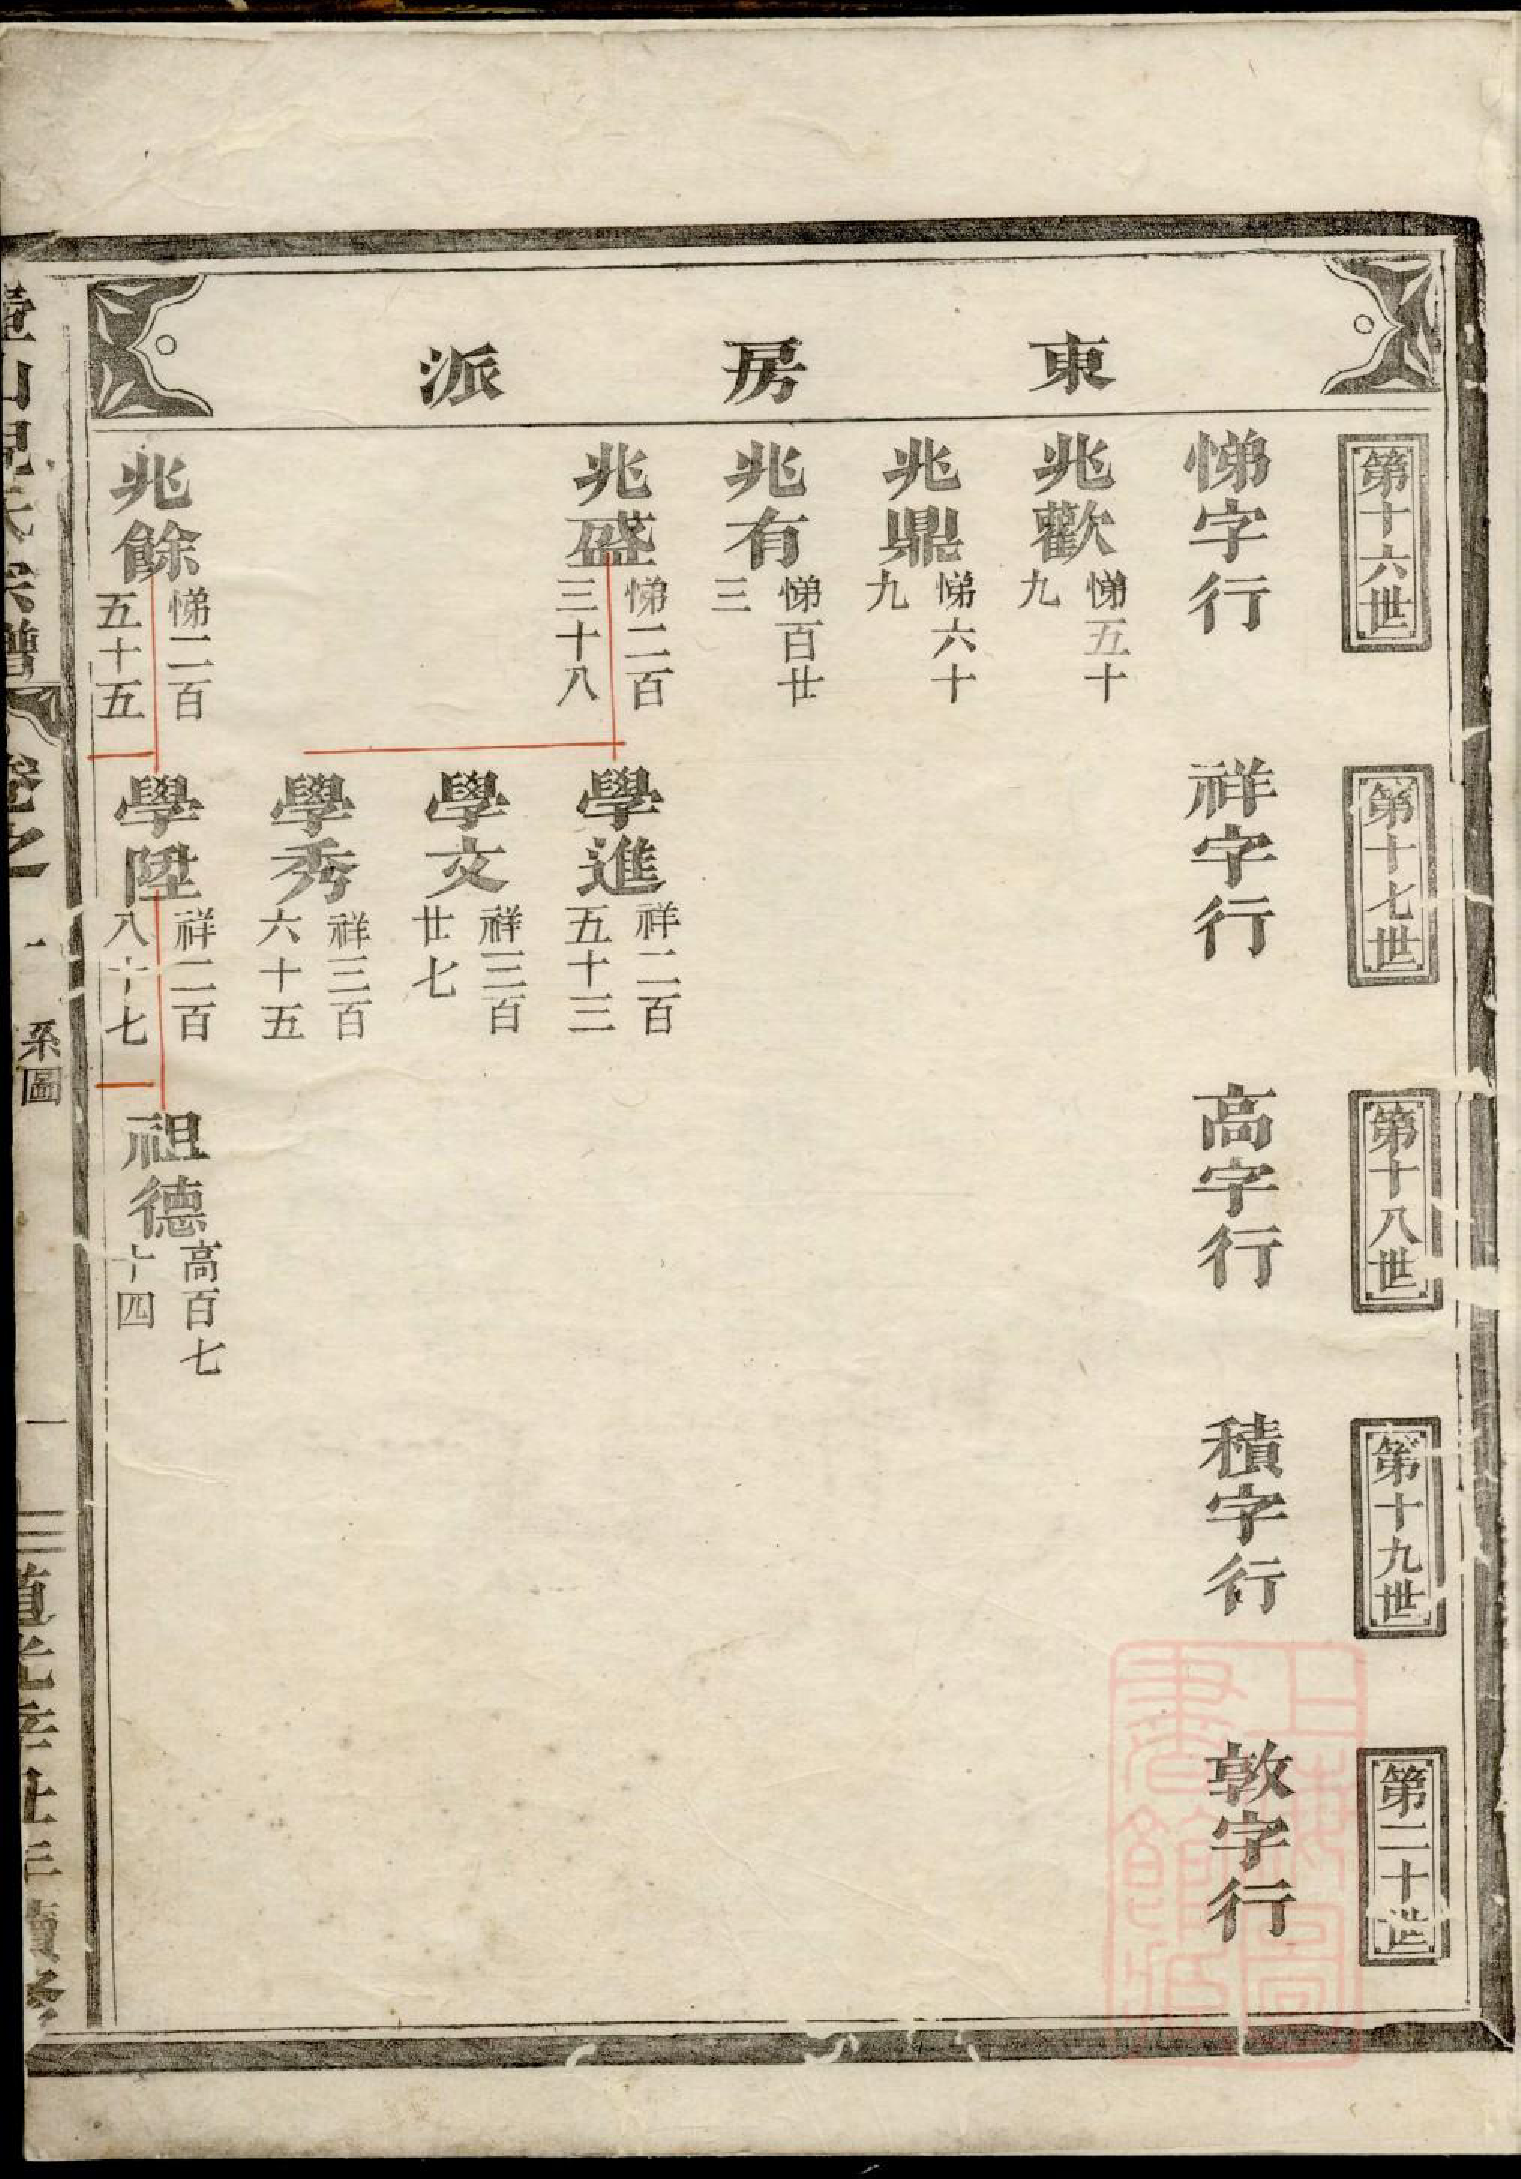 東房派
第十六世
第十七世
第十八世
第十九世
第二十世
悌字行
祥字行
高字行
積字行
敦字行
兆歡 悌五十九
兆鼎 悌六十九
兆有 悌百廿三
兆盛 悌二百三十八
學進 祥二百五十三
學文 祥三百廿七
學秀 祥三百六十五
兆餘 悌二百五十五
學陞 祥二百八十七
祖德 高百七十四
山 氏宗譜 卷之一 系圖 一 道光 年續修
上海圖書館藏